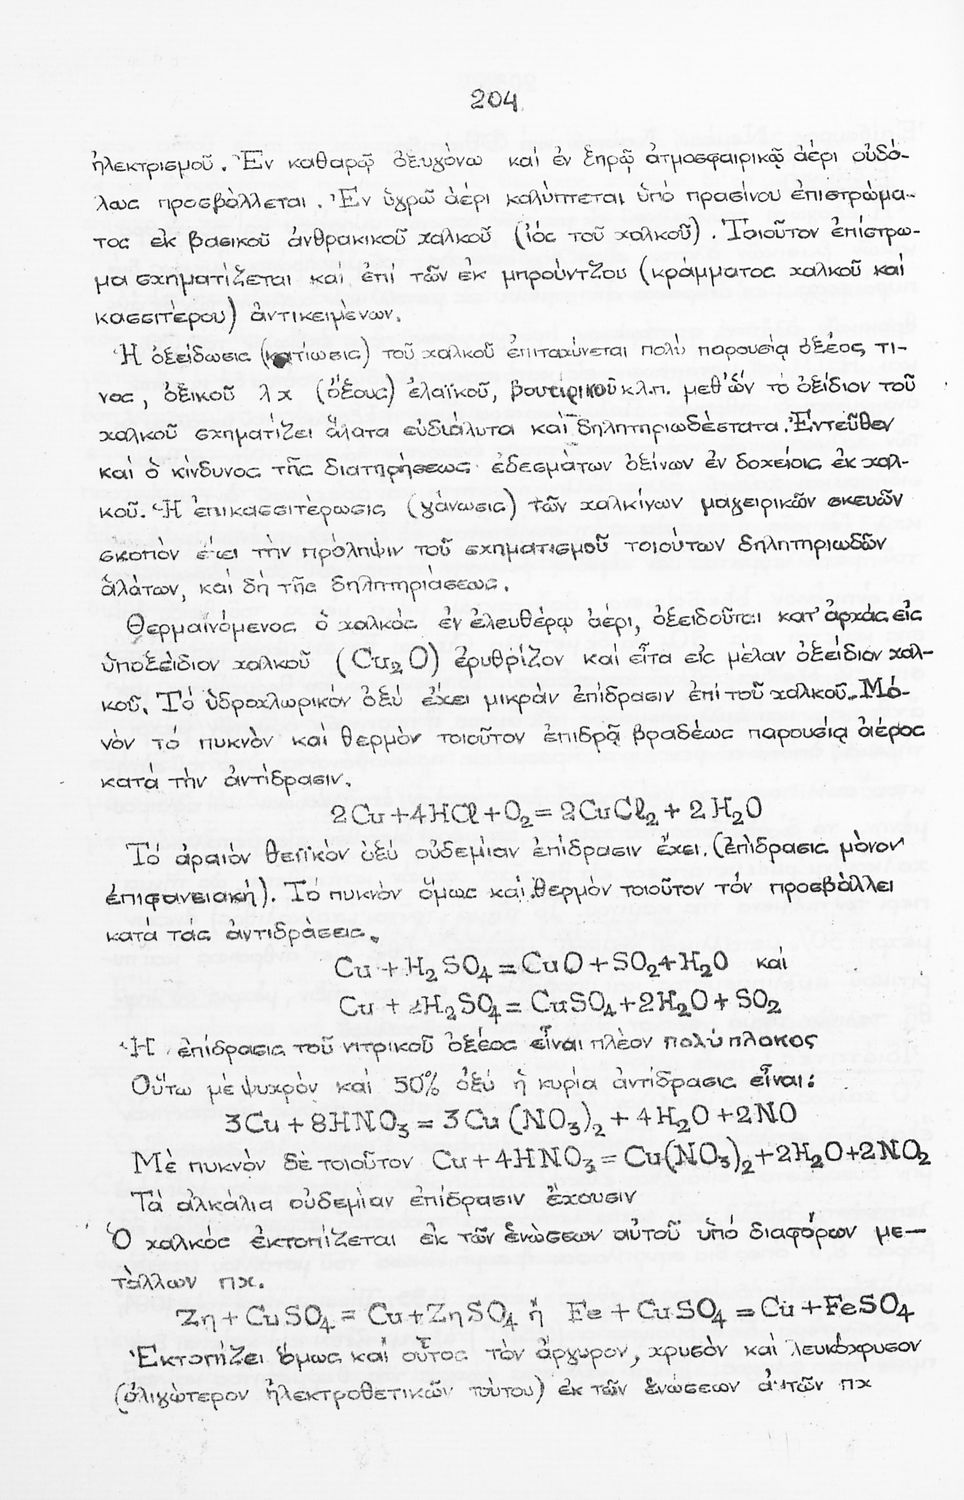 204
ἠλεκτρισμοῦ. Ἐν καθαρῷ ὀξυγόνω καὶ ἐν ξηρῷ ἀτμοσφαιρικῷ ἀέρι οὐδό-
λως προσβάλλεται. Ἐν ὑγρῶ ἀέρι καλύπτεται ὑπό πρασίνου ἐπιστρώμα-
τος ἐκ βασικοῦ ἀνθρακικοῦ χαλκοῦ (ἰός τοῦ χαλκοῦ). Τοιοῦτον ἐπίστρω-
μα σχηματίζεται καί ἐπί τῶν ἐκ μπρούντζου (κράμματος χαλκοῦ καί
κασσιτέρου) ἀντικειμένων.
Ἡ ὀξείδωσις (κατίωσις) τοῦ χαλκοῦ ἐπιταχύνεται πολύ παρουσία ὀξέος τι-
νος, ὀξικοῦ λχ (ὄξους) ἐλαϊκοῦ, βουτιρικοῦ κ.λ.π. μεθ' ὧν τό ὀξίδιον τοῦ
χαλκοῦ σχηματίζει ἅλατα εὐδιάλυτα καί δηλητηριωδέστατα. Ἐντεῦθεν
καί ὁ κίνδυνος τῆς διατηρήσεως ἐδεσμάτων ὀξίνων ἐν δοχείοις ἐκ χαλ-
κοῦ. Ἡ ἐπικασσιτέρωσις (γάνωσις) τῶν χαλκίνων μαγειρικῶν σκευῶν
σκοπὸν ἔχει τὴν πρόληψιν τοῦ σχηματισμοῦ τοιούτων δηλητηριωδῶν
ἁλάτων, καί δὴ τῆς δηλητηριάσεως.
Θερμαινόμενος ὁ χαλκός ἐν ἐλευθέρῳ ἀέρι, ὀξειδοῦται κατ' ἀρχάς εἰς
ὑποξείδιον χαλκοῦ (Cu₂O) ἐρυθρίζον καί εἶτα εἰς μέλαν ὀξείδιον χαλ-
κοῦ. Τό ὑδροχλωρικόν ὀξύ ἔχει μικράν ἐπίδρασιν ἐπί τοῦ χαλκοῦ. Μό-
νον τό πυκνόν καί θερμόν τοιοῦτον ἐπιδρᾷ βραδέως παρουσίᾳ ἀέρος
κατά τὴν ἀντίδρασιν.
2Cu+4HCl+O₂=2CuCl₂+2H₂O
Τό ἀραιόν θειϊκόν ὀξύ οὐδεμίαν ἐπίδρασιν ἔχει. (ἐπίδρασις μόνον
ἐπιφανειακή). Τό πυκνόν ὅμως καί θερμόν τοιοῦτον τόν προσβάλλει
κατά τάς ἀντιδράσεις.
Cu+H₂SO₄=CuO+SO₂+H₂O καί
Cu+2H₂SO₄=CuSO₄+2H₂O+SO₂
Ἡ ἐπίδρασις τοῦ νιτρικοῦ ὀξέος εἶναι πλέον πολύπλοκος
Οὕτω μέ ψυχρόν καί 50% ὀξύ ἡ κυρία ἀντίδρασις εἶναι:
3Cu+8HNO₃=3Cu(NO₃)₂+4H₂O+2NO
Μὲ πυκνὸν δὲ τοιοῦτον Cu+4HNO₃=Cu(NO₃)₂+2H₂O+2NO₂
Τά ἀλκάλια οὐδεμίαν ἐπίδρασιν ἔχουσιν
Ὁ χαλκός ἐκτοπίζεται ἐκ τῶν ἑνώσεων αὐτοῦ ὑπό διαφόρων με-
τάλλων πχ.
Zη+CuSO₄=Cu+ZηSO₄ ἤ Fe+CuSO₄=Cu+FeSO₄
Ἐκτοπίζει ὅμως καί οὗτος τόν ἄργυρον, χρυσόν καί λευκόχρυσον
(ὀλιγώτερον ἠλεκτροθετικῶν τούτου) ἐκ τῶν ἑνώσεων αὐτῶν πχ